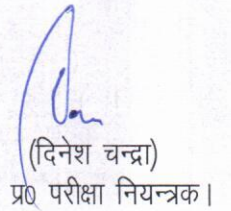 (दिनेश चन्द्रा)
प्र0 परीक्षा नियन्त्रक।